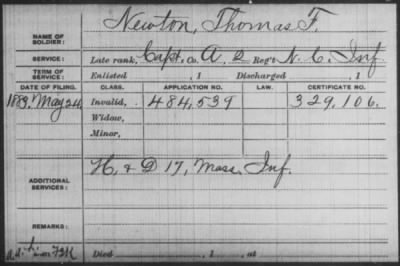 Newton, Thomas F.
NAME OF SOLDIER:
SERVICE: Late rank, Capt, Co. A, 2 Reg't N. C. Inf.
TERM OF SERVICE: Enlisted , 1 Discharged , 1
DATE OF FILING. CLASS. APPLICATION NO. LAW. CERTIFICATE NO.
1883, May 24. Invalid, 484,539 329,106.
Widow,
Minor,
ADDITIONAL SERVICES: H. & D 17, Mass. Inf.
REMARKS:
Died , 1 , at